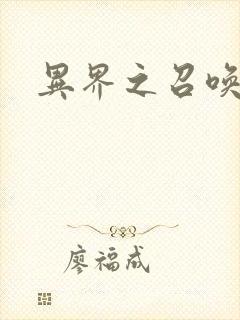 異界之召喚
廖福成